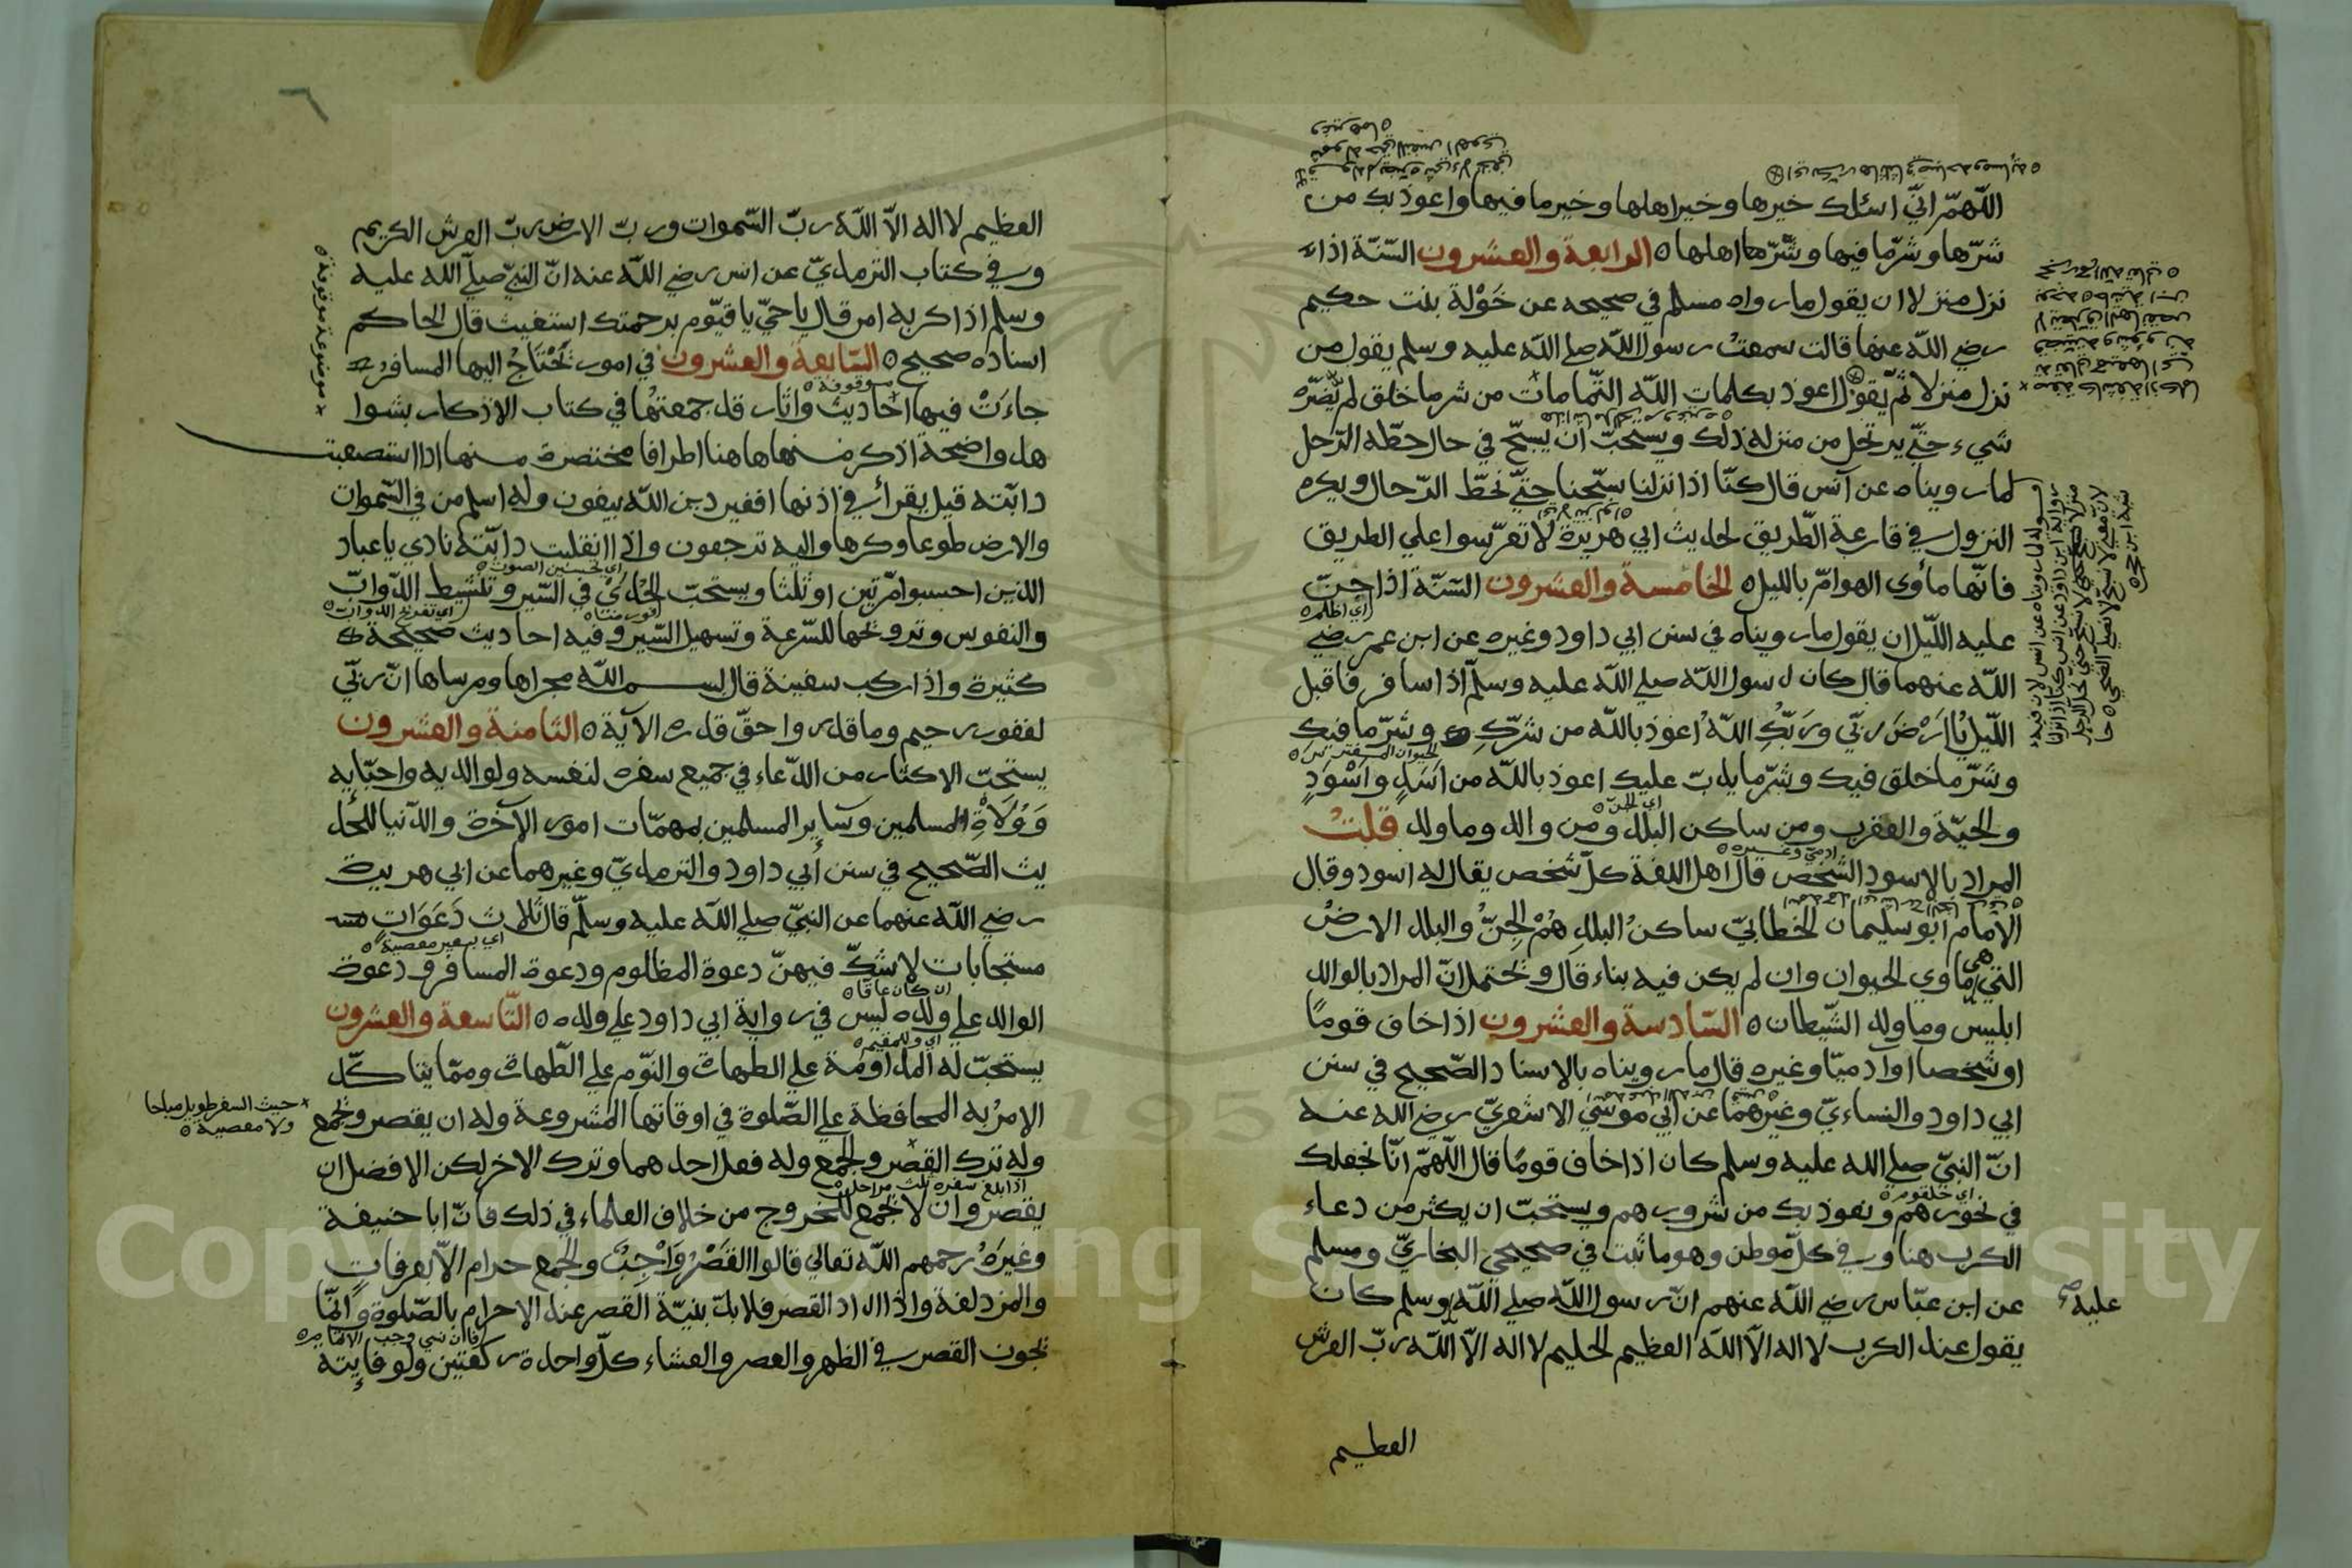 اللّهمّ انّي اسئلك خيرها وخير اهلها وخير ما فيها واعوذ بك من
شرّها وشرّ ما فيها وشرّ اهلها ٥ الرابعة والعشرون السّنّة اذا
نزل منزلا ان يقول ما رواه مسلم في صحيحه عن خَوْلة بنت حكيم
رضي اللّه عنها قالت سمعتُ رسول اللّه صلي اللّه عليه وسلم يقول من
نزل منزلا ثمّ يقول اعوذ بكلمات اللّه التّامات من شر ما خلق لم يضرّه
شيء حتّي يرتحل من منزله ذلك ويستحبّ ان يسبّح في حال حطّه الرّحل
لما رويناه عن انس قال كنّا اذا نزلنا سبّحنا حتّي نحطّ الرّحال ويكره
النزول في قارعة الطّريق لحديث ابي هريرة لا تعرّسوا علي الطريق
فانّها مأوى الهوامّ بالليل ٥ الخامسة والعشرون السّنّة اذا جنّ
اي اظلم ٥
عليه اللّيل ان يقول ما رويناه في سنن ابي داود وغيره عن ابن عمر رضي
اللّه عنهما قال كان رسول اللّه صلي اللّه عليه وسلّم اذا سافر فاقبل
اللّيل يا اَرْضُ ربّي وربّكِ اللّهُ اعوذ باللّه من شرّكِ وشرّ ما فيك
الحيوان المفترس ٥
وشَرّ ما خلق فيك وشرّ ما يدبّ عليك اعوذ باللّه من اَسَدٍ واَسْوَدٍ
اي الجنّ ٥
والحيّة والعقرب ومن ساكن البلد ومن والد وما ولد قلتُ
ادميّ وغيره ٥
المراد بالاسود الشّخص قال اهل اللغة كلّ شخص يقال له اسود وقال
الامام ابو سليمان الخطابيّ ساكنُ البلدِ هُمْ الجنُّ والبلد الارضُ
التي هي ماوي الحيوان وان لم يكن فيه بناء قال ويحتمل انّ المراد بالوالد
ابليس وما ولد الشّيطان ٥ السّادسة والعشرون اذا خاف قومًا
او شخصا اوآدميّا وغيره قال ما رويناه بالاسناد الصّحيح في سنن
ابي داود والنساءيّ وغيرهما عن ابي موسي الاشعريّ رضي اللّه عنه
انّ النبيّ صلي اللّه عليه وسلم كان اذا خاف قومًا قال اللّهمّ انّا نجعلك
اي حلقوم ٥
في نحورهم ونعوذ بك من شرورهم ويستحبّ ان يكثر من دعاء
الكرب هنا وفي كلّ موطن وهو ما ثبت في صحيحي البخاريّ ومسلم
عن ابن عبّاس رضي اللّه عنهم انّ رسول اللّه صلي اللّه وسلم كان
عليه صح
يقول عند الكرب لا اله الاّ اللّه العظيم الحليم لا اله الاّ اللّه ربّ العرش
العظيم
٦
العظيم لا اله الاّ اللّه ربّ السّموات وربّ الارض ربّ العرش الكريم
وفي كتاب الترمذيّ عن انس رضي اللّه عنه انّ النبيّ صلّي اللّه عليه
وسلم اذا كربه امر قال يا حيّ يا قيّوم برحمتك استغيث قال الحاكم
اسناده صحيح ٥ السّابعة والعشرون في امور يَحْتَاجُ اليها المسافر
موقوفة ٥
جاءَتْ فيها احاديث واثار قد جمعتها في كتاب الاذكار بشوا
هد واضحة اذكر منها هاهنا اطرافا مختصرة منها اذا استصعبت
× مرفوعة موقوفة ٥
دابّته قيل يقرأ في اذنها افغير دين اللّه يبغون وله اسلم من في السّموات
والارض طوعا وكرها واليه ترجعون واذا انفلتت دابّته نادي يا عباد
اي تحسين الصوت ٥
الذين احبسوا مرّتين او ثلثا ويستحبّ الحُدَىْ في السّير وتنشيط الدّوابّ
والنفوس وترويحها للسّرعة وتسهيل السّير وفيه احاديث صحيحة
كثيرة واذا ركب سفينة قال بسم اللّه مجراها ومرساها انّ ربّي
لغفور رحيم وما قدروا حقّ قدره الآية ٥ الثامنة والعشرون
يستحبّ الاكثار من الدّعاء في جميع سفره لنفسه ولوالديه واحبّايه
وَوُلَاةِ المسلمين وسَايرِ المسلمين بمهمّات امور الآخرة والدّنيا للحد
يث الصّحيح في سنن أبي داود والترمذيّ وغيرهما عن ابي هريرة
رضي اللّه عنهما عن النبيّ صلي اللّه عليه وسلّم قال ثلاث دَعَوَاتٍ
اي بغير معصية ٥
مستجابات لا شكّ فيهنّ دعوة المظلوم ودعوة المسافر ودعوة
ان كان عاقا ٥
الوالد علي ولده ليس في رواية ابي داود علي ولده ٥ التّاسعة والعشرون
اي وللمقيم ٥
يستحبّ له المداومة علي الطهارة والنّوم علي الطّهارة وممّا يتاكّد
الامرُ به المحافظة علي الصّلوة في اوقاتها المشروعة وله ان يقصر ويجمع
× حيث السفر طويل مباحا
ولا معصية ٥
وله ترك القصر والجمع وله فعل احدهما وترك الاخر لكن الافضل ان
اذا بلغ سفره ثلث مراحل ٥
يقصر وان لا يجمع للخروج من خلاف العلماء في ذلك فانّ ابا حنيفة
وغيرَهُ رحمهم اللّه تعالي قالوا القَصْرُ وَاجِبٌ والجمع حرام الاّ بعرفات
والمزدلفة واذا اراد القصر فلا بدّ بنيّة القصر عند الاحرام بالصّلوة وانّما
يجوز القصر في الظهر والعصر والعشاء كلّ واحدة ركعتين ولو فايتة